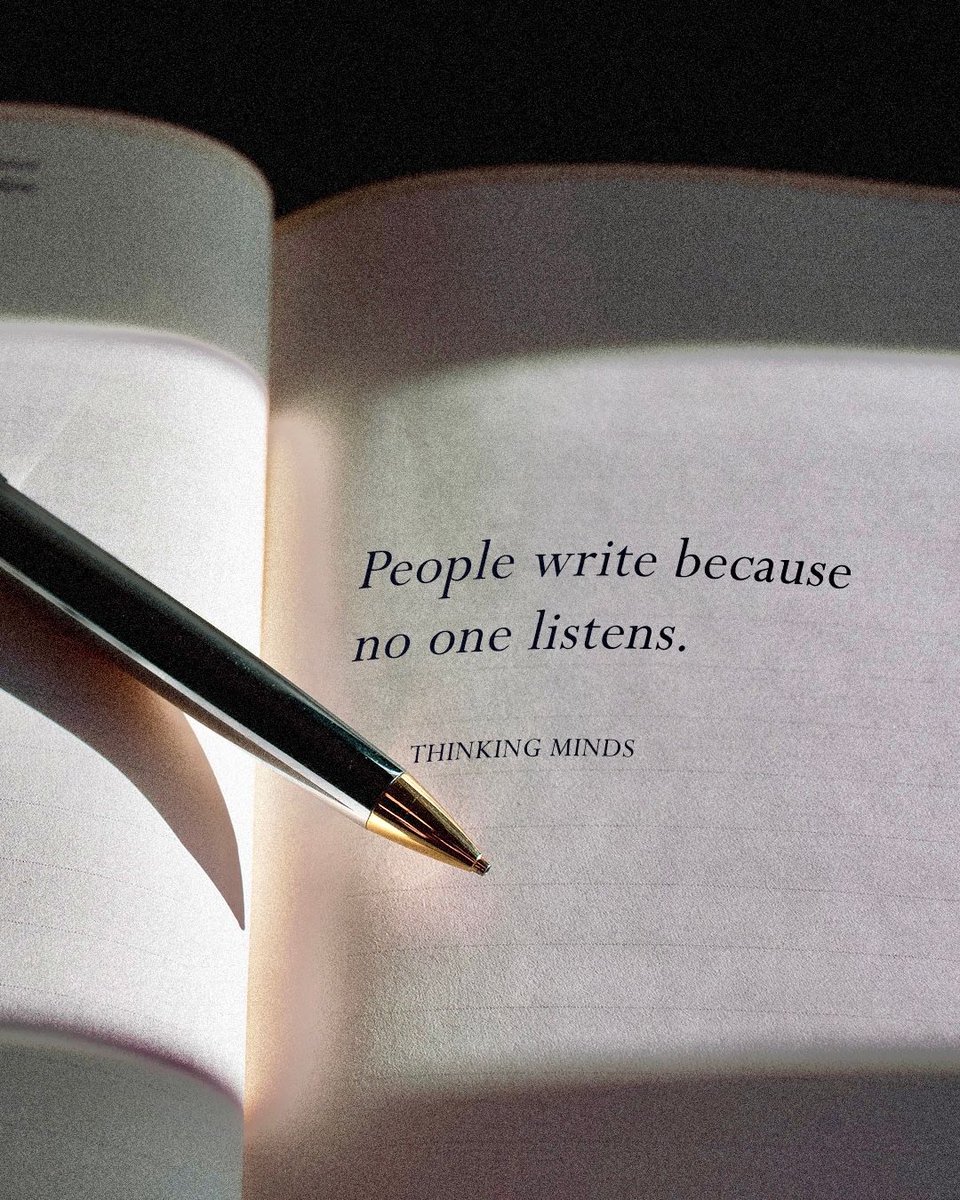 People write because
no one listens.
THINKING MINDS